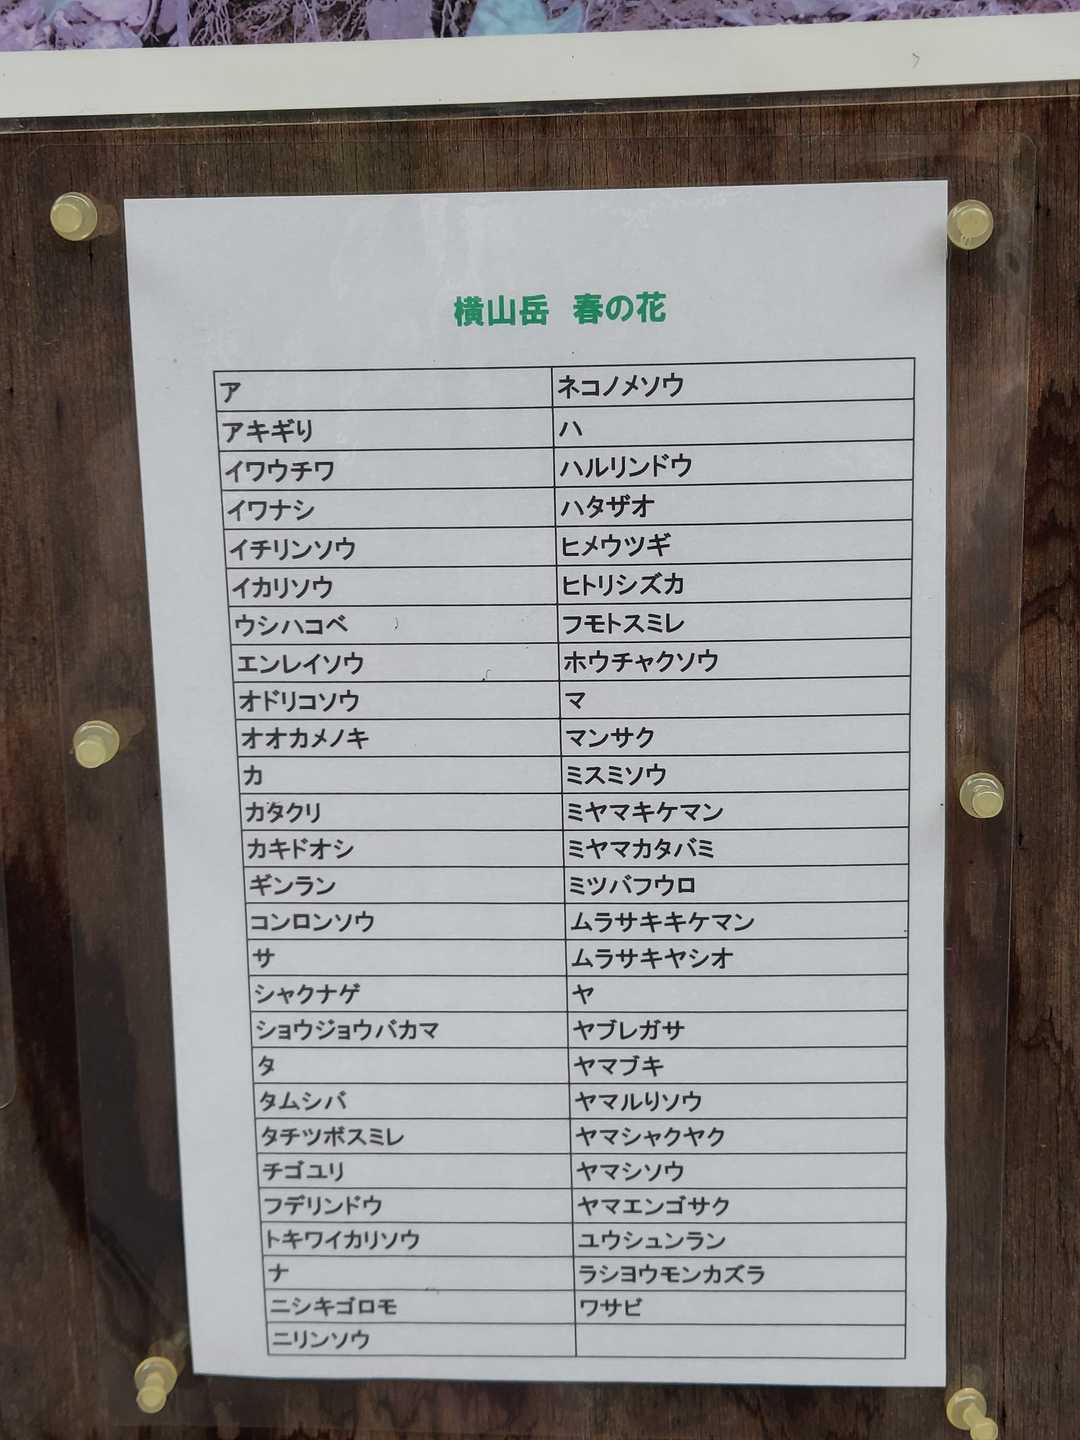 横山岳 春の花
ア
アキギり
イワウチワ
イワナシ
イチリンソウ
イカリソウ
ウシハコベ
エンレイソウ
オドリコソウ
オオカメノキ
カ
カタクリ
カキドオシ
ギンラン
コンロンソウ
サ
シャクナゲ
ショウジョウバカマ
タ
タムシバ
タチツボスミレ
チゴユリ
フデリンドウ
トキワイカリソウ
ナ
ニシキゴロモ
ニリンソウ
ネコノメソウ
ハ
ハルリンドウ
ハタザオ
ヒメウツギ
ヒトリシズカ
フモトスミレ
ホウチャクソウ
マ
マンサク
ミスミソウ
ミヤマキケマン
ミヤマカタバミ
ミツバフウロ
ムラサキキケマン
ムラサキヤシオ
ヤ
ヤブレガサ
ヤマブキ
ヤマルりソウ
ヤマシャクヤク
ヤマシソウ
ヤマエンゴサク
ユウシュンラン
ラショウモンカズラ
ワサビ